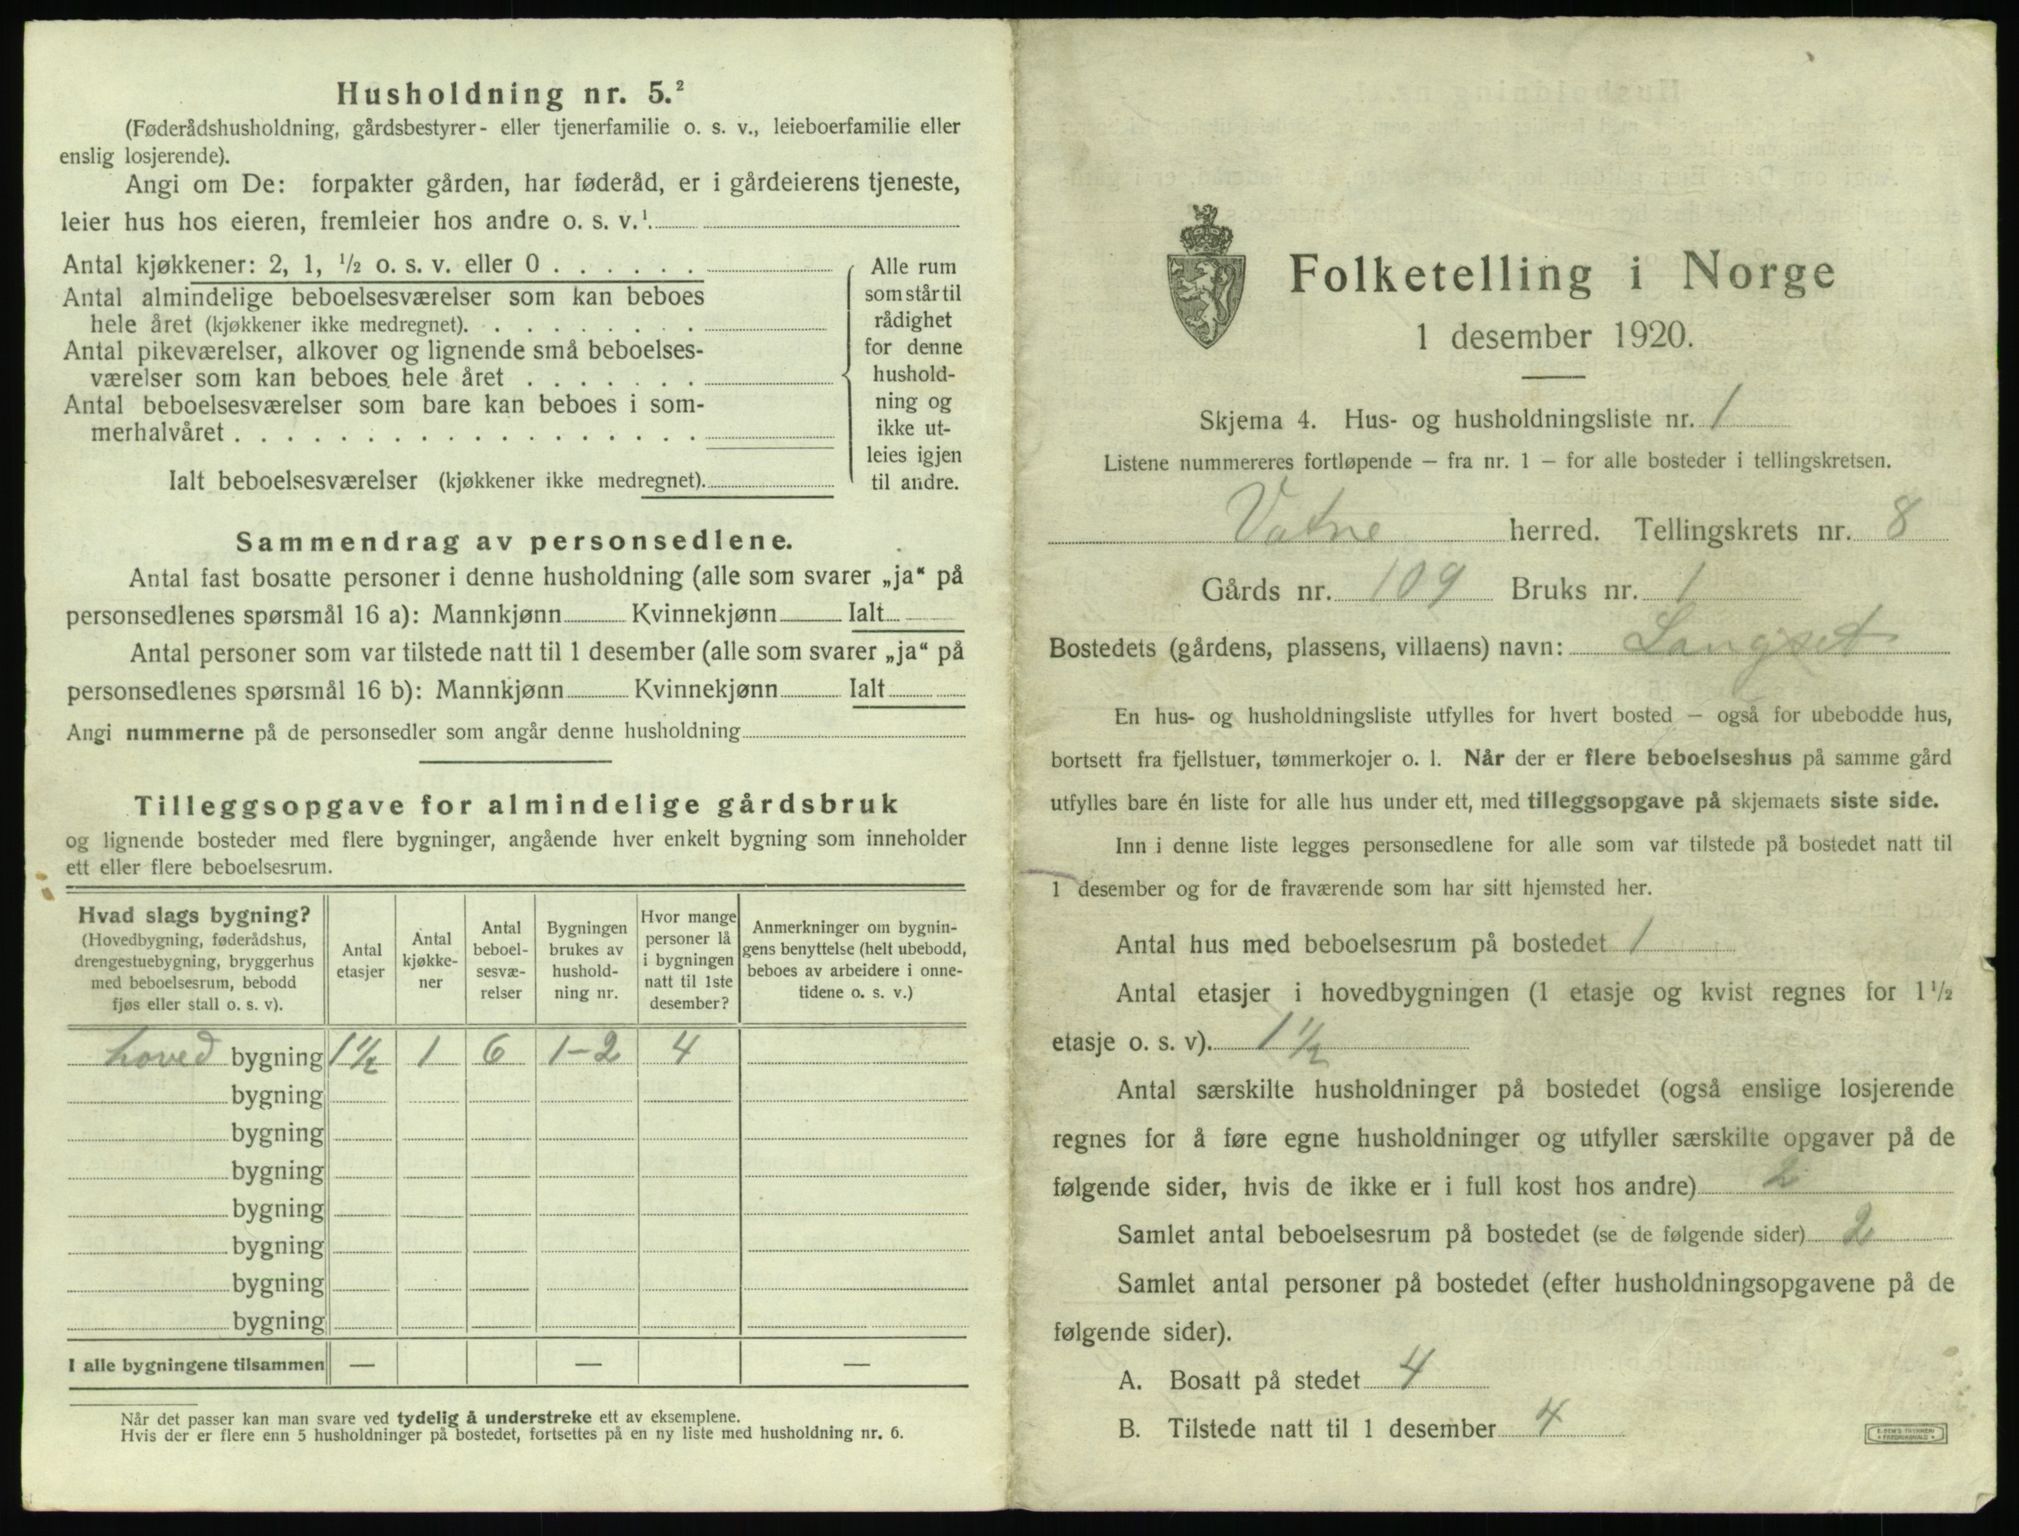 Husholdning nr. 5.²
(Føderådshusholdning, gårdsbestyrer- eller tjenerfamilie o. s. v., leieboerfamilie eller
enslig losjerende).
Angi om De: forpakter gården, har føderåd, er i gårdeierens tjeneste,
leier hus hos eieren, fremleier hos andre o. s. v.¹
Antal kjøkkener: 2, 1, ½ o. s. v. eller 0 . . . . . .
Antal almindelige beboelsesværelser som kan beboes
hele året (kjøkkener ikke medregnet). . . . . . . . .
Antal pikeværelser, alkover og lignende små beboelses-
værelser som kan beboes hele året . . . . . . .
Antal beboelsesværelser som bare kan beboes i som-
merhalvåret . . . . . . . . . . . . . . . . .
Ialt beboelsesværelser (kjøkkener ikke medregnet).
Alle rum
som står til
rådighet
for denne
hushold-
ning og
ikke ut-
leies igjen
til andre.
Sammendrag av personsedlene.
Antal fast bosatte personer i denne husholdning (alle som svarer „ja“ på
personsedlenes spørsmål 16 a): Mannkjønn Kvinnekjønn Ialt
Antal personer som var tilstede natt til 1 desember (alle som svarer „ja“ på
personsedlenes spørsmål 16 b): Mannkjønn Kvinnekjønn Ialt
Angi nummerne på de personsedler som angår denne husholdning
Tilleggsopgave for almindelige gårdsbruk
og lignende bosteder med flere bygninger, angående hver enkelt bygning som inneholder
ett eller flere beboelsesrum.
Hvad slags bygning?
(Hovedbygning, føderådshus,
drengestuebygning, bryggerhus
med beboelsesrum, bebodd
fjøs eller stall o. s. v).
Antal
etasjer
Antal
kjøkke-
ner
Antal
beboel-
sesvæ-
relser
Bygningen
brukes av
hushold-
ning nr.
Hvor mange
personer lå
i bygningen
natt til 1ste
desember?
Anmerkninger om bygnin-
gens benyttelse (helt ubebodd,
beboes av arbeidere i onne-
tidene o. s. v.)
hoved bygning 1 ½ 1 6 1-2 4
bygning
bygning
bygning
bygning
bygning
bygning
bygning
I alle bygningene tilsammen — — —
Når det passer kan man svare ved tydelig å understreke ett av eksemplene.
Hvis der er flere enn 5 husholdninger på bostedet, fortsettes på en ny liste med husholdning nr. 6.
Folketelling i Norge
1 desember 1920.
Skjema 4. Hus- og husholdningsliste nr. 1
Listene nummereres fortløpende — fra nr. 1 — for alle bosteder i tellingskretsen.
Vatne herred. Tellingskrets nr. 8
Gårds nr. 109 Bruks nr. 1
Bostedets (gårdens, plassens, villaens) navn: Langset
En hus- og husholdningsliste utfylles for hvert bosted — også for ubebodde hus,
bortsett fra fjellstuer, tømmerkojer o. l. Når der er flere beboelseshus på samme gård
utfylles bare én liste for alle hus under ett, med tilleggsopgave på skjemaets siste side.
Inn i denne liste legges personsedlene for alle som var tilstede på bostedet natt til
1 desember og for de fraværende som har sitt hjemsted her.
Antal hus med beboelsesrum på bostedet 1
Antal etasjer i hovedbygningen (1 etasje og kvist regnes for 1½
etasje o. s. v). 1 ½
Antal særskilte husholdninger på bostedet (også enslige losjerende
regnes for å føre egne husholdninger og utfyller særskilte opgaver på de
følgende sider, hvis de ikke er i full kost hos andre) 2
Samlet antal beboelsesrum på bostedet (se de følgende sider) 2
Samlet antal personer på bostedet (efter husholdningsopgavene på de
følgende sider).
A. Bosatt på stedet 4
B. Tilstede natt til 1 desember 4